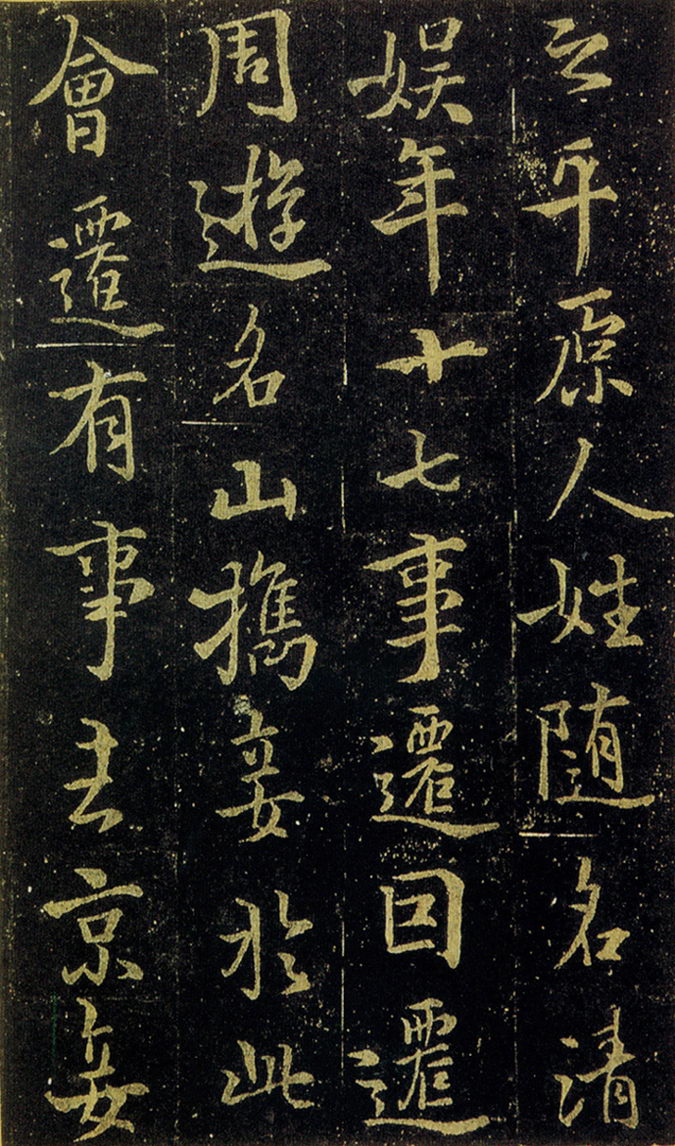 之平原人姓随名清
娛年十七事遷因遷
周遊名山攜妾於此
會遷有事去京妾